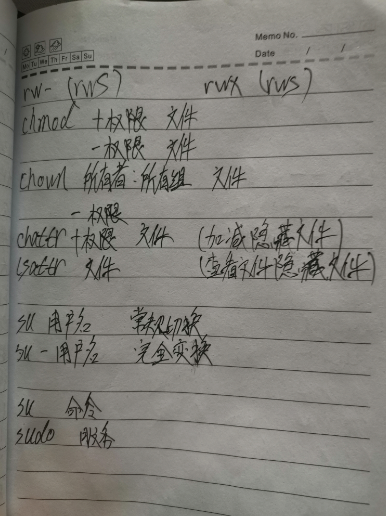 Memo No.
Mo Tu We Th Fr Sa Su
Date / /
rw- (rws) rwx (rws)
chmod +权限 文件
-权限 文件
chown 所有者:所有组 文件
-权限
chattr +权限 文件 (加减隐藏文件)
lsattr 文件 (查看文件隐藏文件)
su 用户名 常规切换
su - 用户名 完全变换
su 命令
sudo 服务